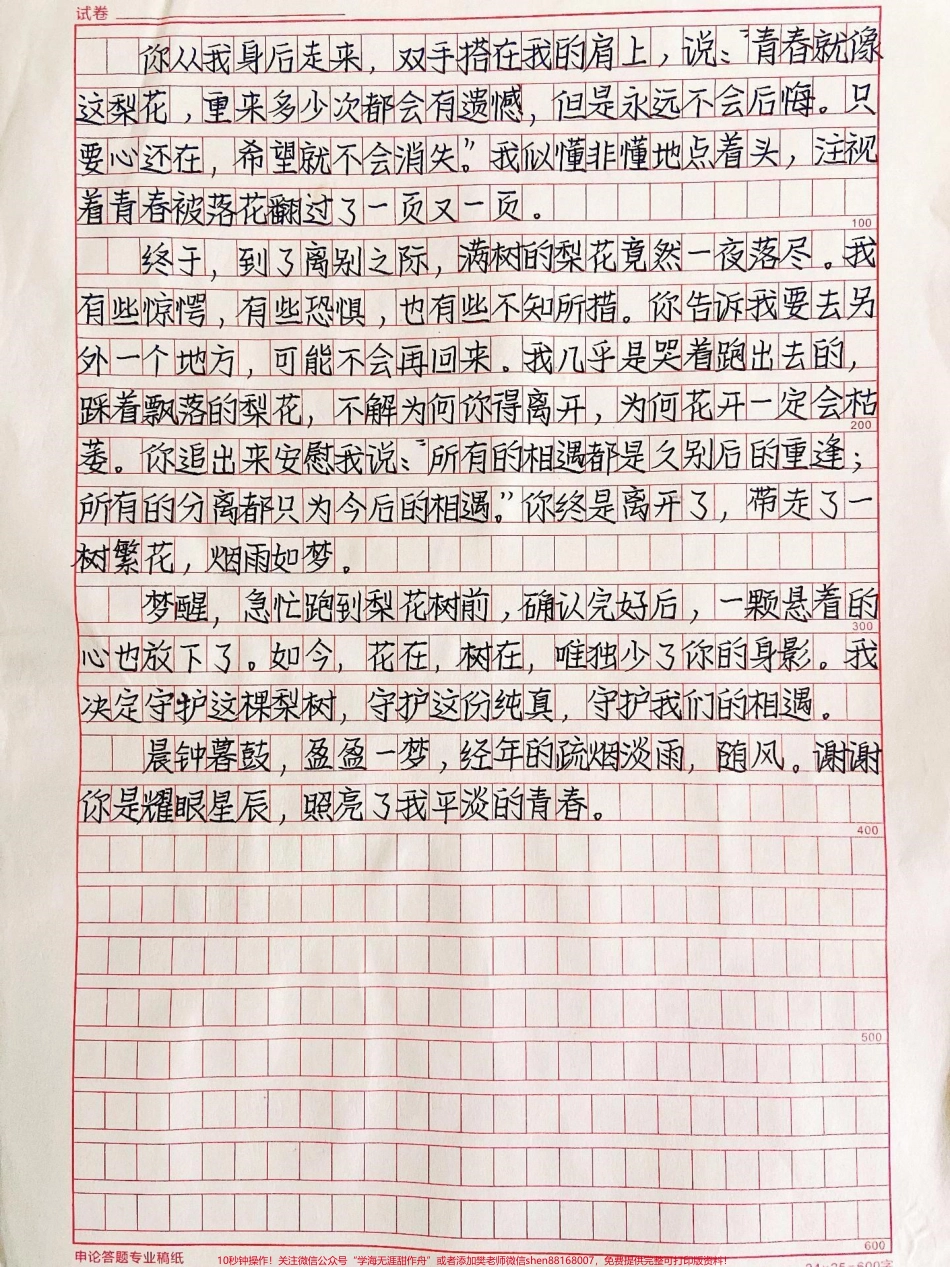 试卷
你从我身后走来，双手搭在我的肩上，说：“青春就像
这梨花，重来多少次都会有遗憾，但是永远不会后悔。只
要心还在，希望就不会消失。”我似懂非懂地点着头，注视
着青春被落花翻过了一页又一页。
100
终于，到了离别之际，满树的梨花竟然一夜落尽。我
有些惊愕，有些恐惧，也有些不知所措。你告诉我要去另
外一个地方，可能不会再回来。我几乎是哭着跑出去的，
踩着飘落的梨花，不解为何你得离开，为何花开一定会枯
200
萎。你追出来安慰我说：“所有的相遇都是久别后的重逢；
所有的分离都只为今后的相遇。”你终是离开了，带走了一
树繁花，烟雨如梦。
梦醒，急忙跑到梨花树前，确认完好后，一颗悬着的
300
心也放下了。如今，花在，树在，唯独少了你的身影。我
决定守护这棵梨树，守护这份纯真，守护我们的相遇。
晨钟暮鼓，盈盈一梦，经年的疏烟淡雨，随风。谢谢
你是耀眼星辰，照亮了我平淡的青春。
400
500
600
申论答题专业稿纸
10秒钟操作！关注微信公众号“学海无涯甜作舟”或者添加樊老师微信shen88168007，免费提供完整可打印版资料！
24×25=600字